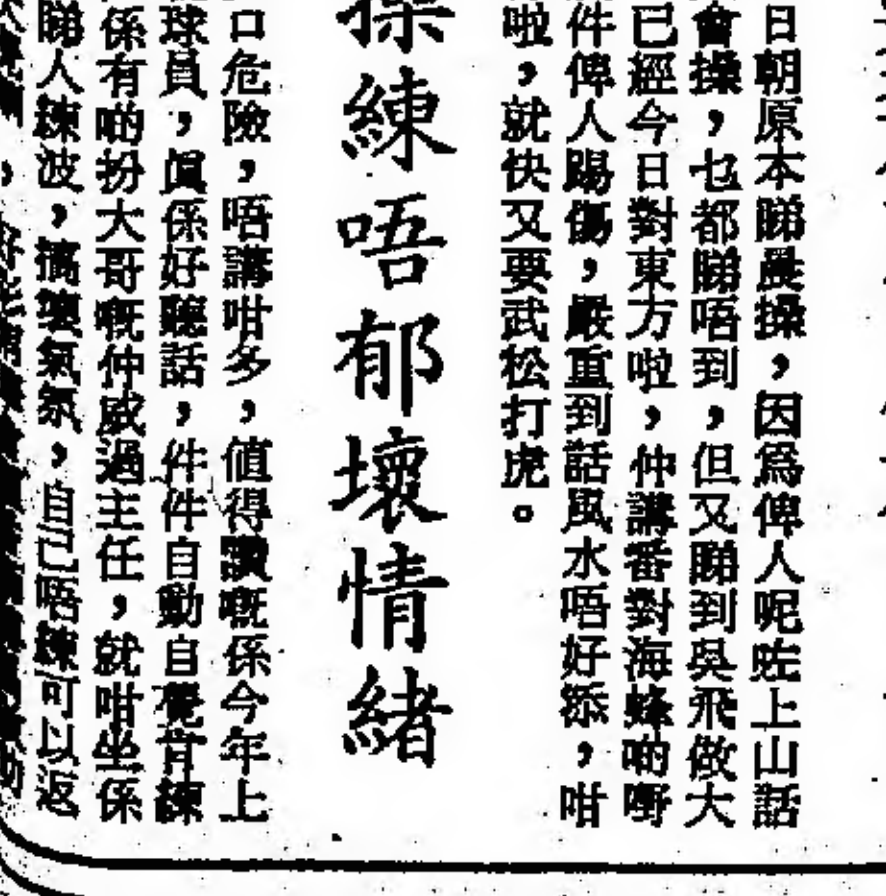 日朝原本睇晨操，因爲俾人呢咗上山話
會操，乜都睇唔到，但又睇到吳飛做大
已經今日對東方啦，仲講番對海蜂啲嘢
件俾人踢傷，嚴重到話風水唔好添，咁
啦，就快又要武松打虎。
操練唔郁壞情緒
口危險，唔講咁多，值得讚嘅係今年上
球員，眞係好聽話，件件自動自覺肯練
係有啲扮大哥嘅仲威過主任，就咁坐係
睇人練波，搞壞氣氛，自己唔練可以返